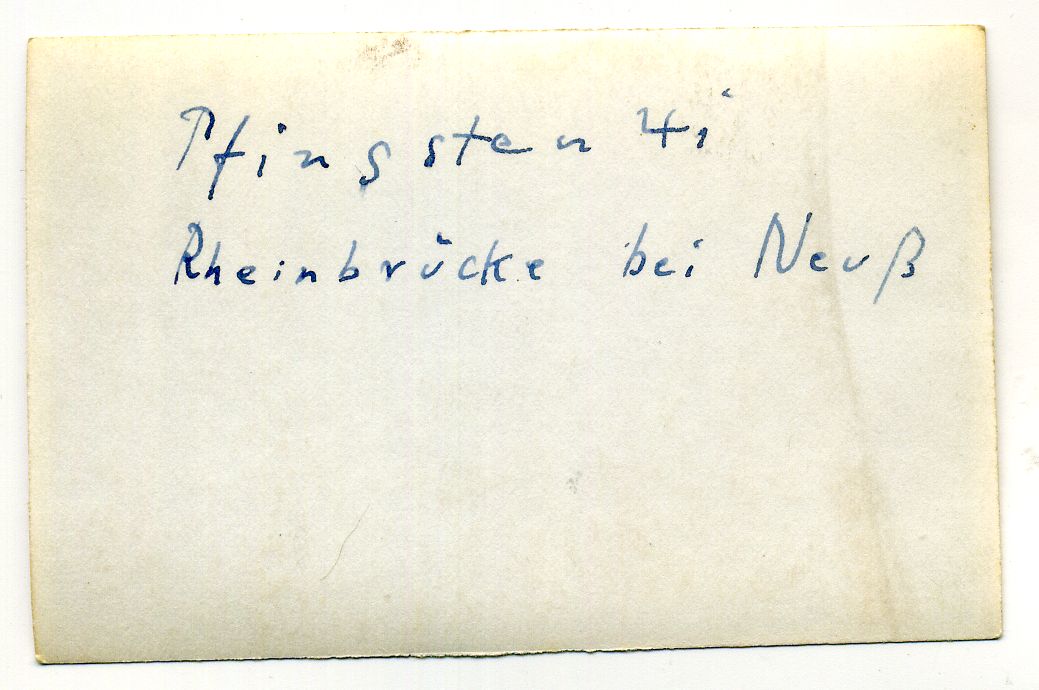 Pfingsten 41
Rheinbrücke bei Neuß